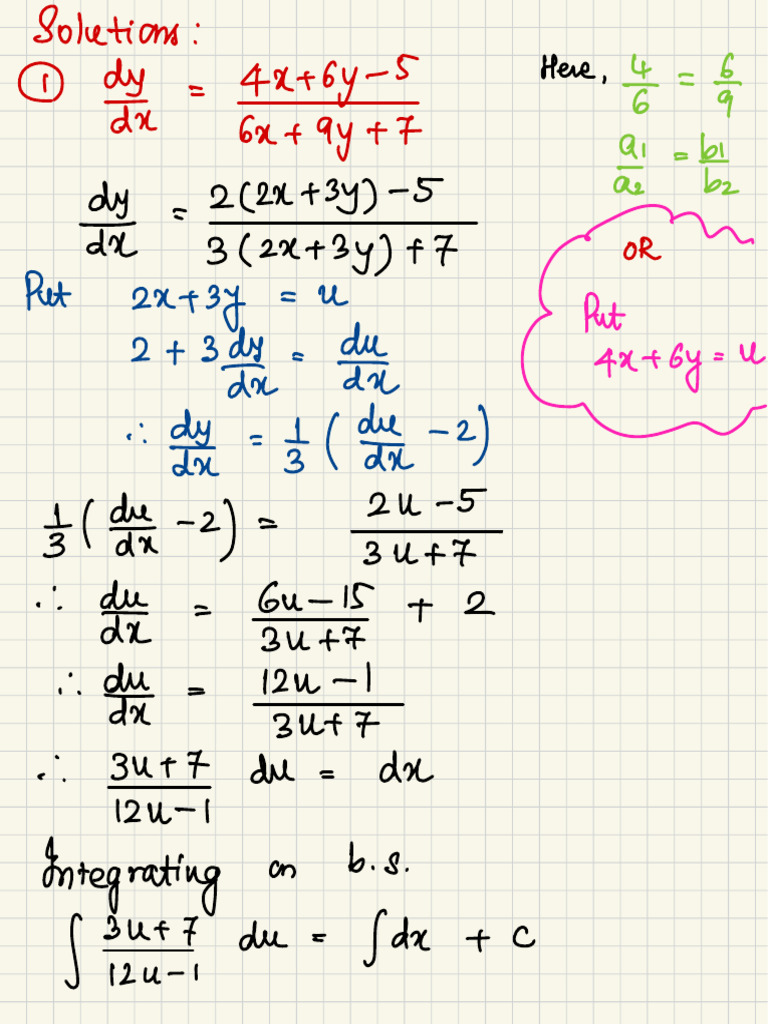 Solutions:
① dy/dx = (4x+6y-5)/(6x+9y+7)
Here, 4/6 = 6/9
a1/a2 = b1/b2
dy/dx = (2(2x+3y)-5)/(3(2x+3y)+7)
OR
Put
4x+6y = u
Put 2x+3y = u
2 + 3 dy/dx = du/dx
∴ dy/dx = 1/3 (du/dx - 2)
1/3 (du/dx - 2) = (2u-5)/(3u+7)
∴ du/dx = (6u-15)/(3u+7) + 2
∴ du/dx = (12u-1)/(3u+7)
∴ (3u+7)/(12u-1) du = dx
Integrating on b.s.
∫ (3u+7)/(12u-1) du = ∫dx + c